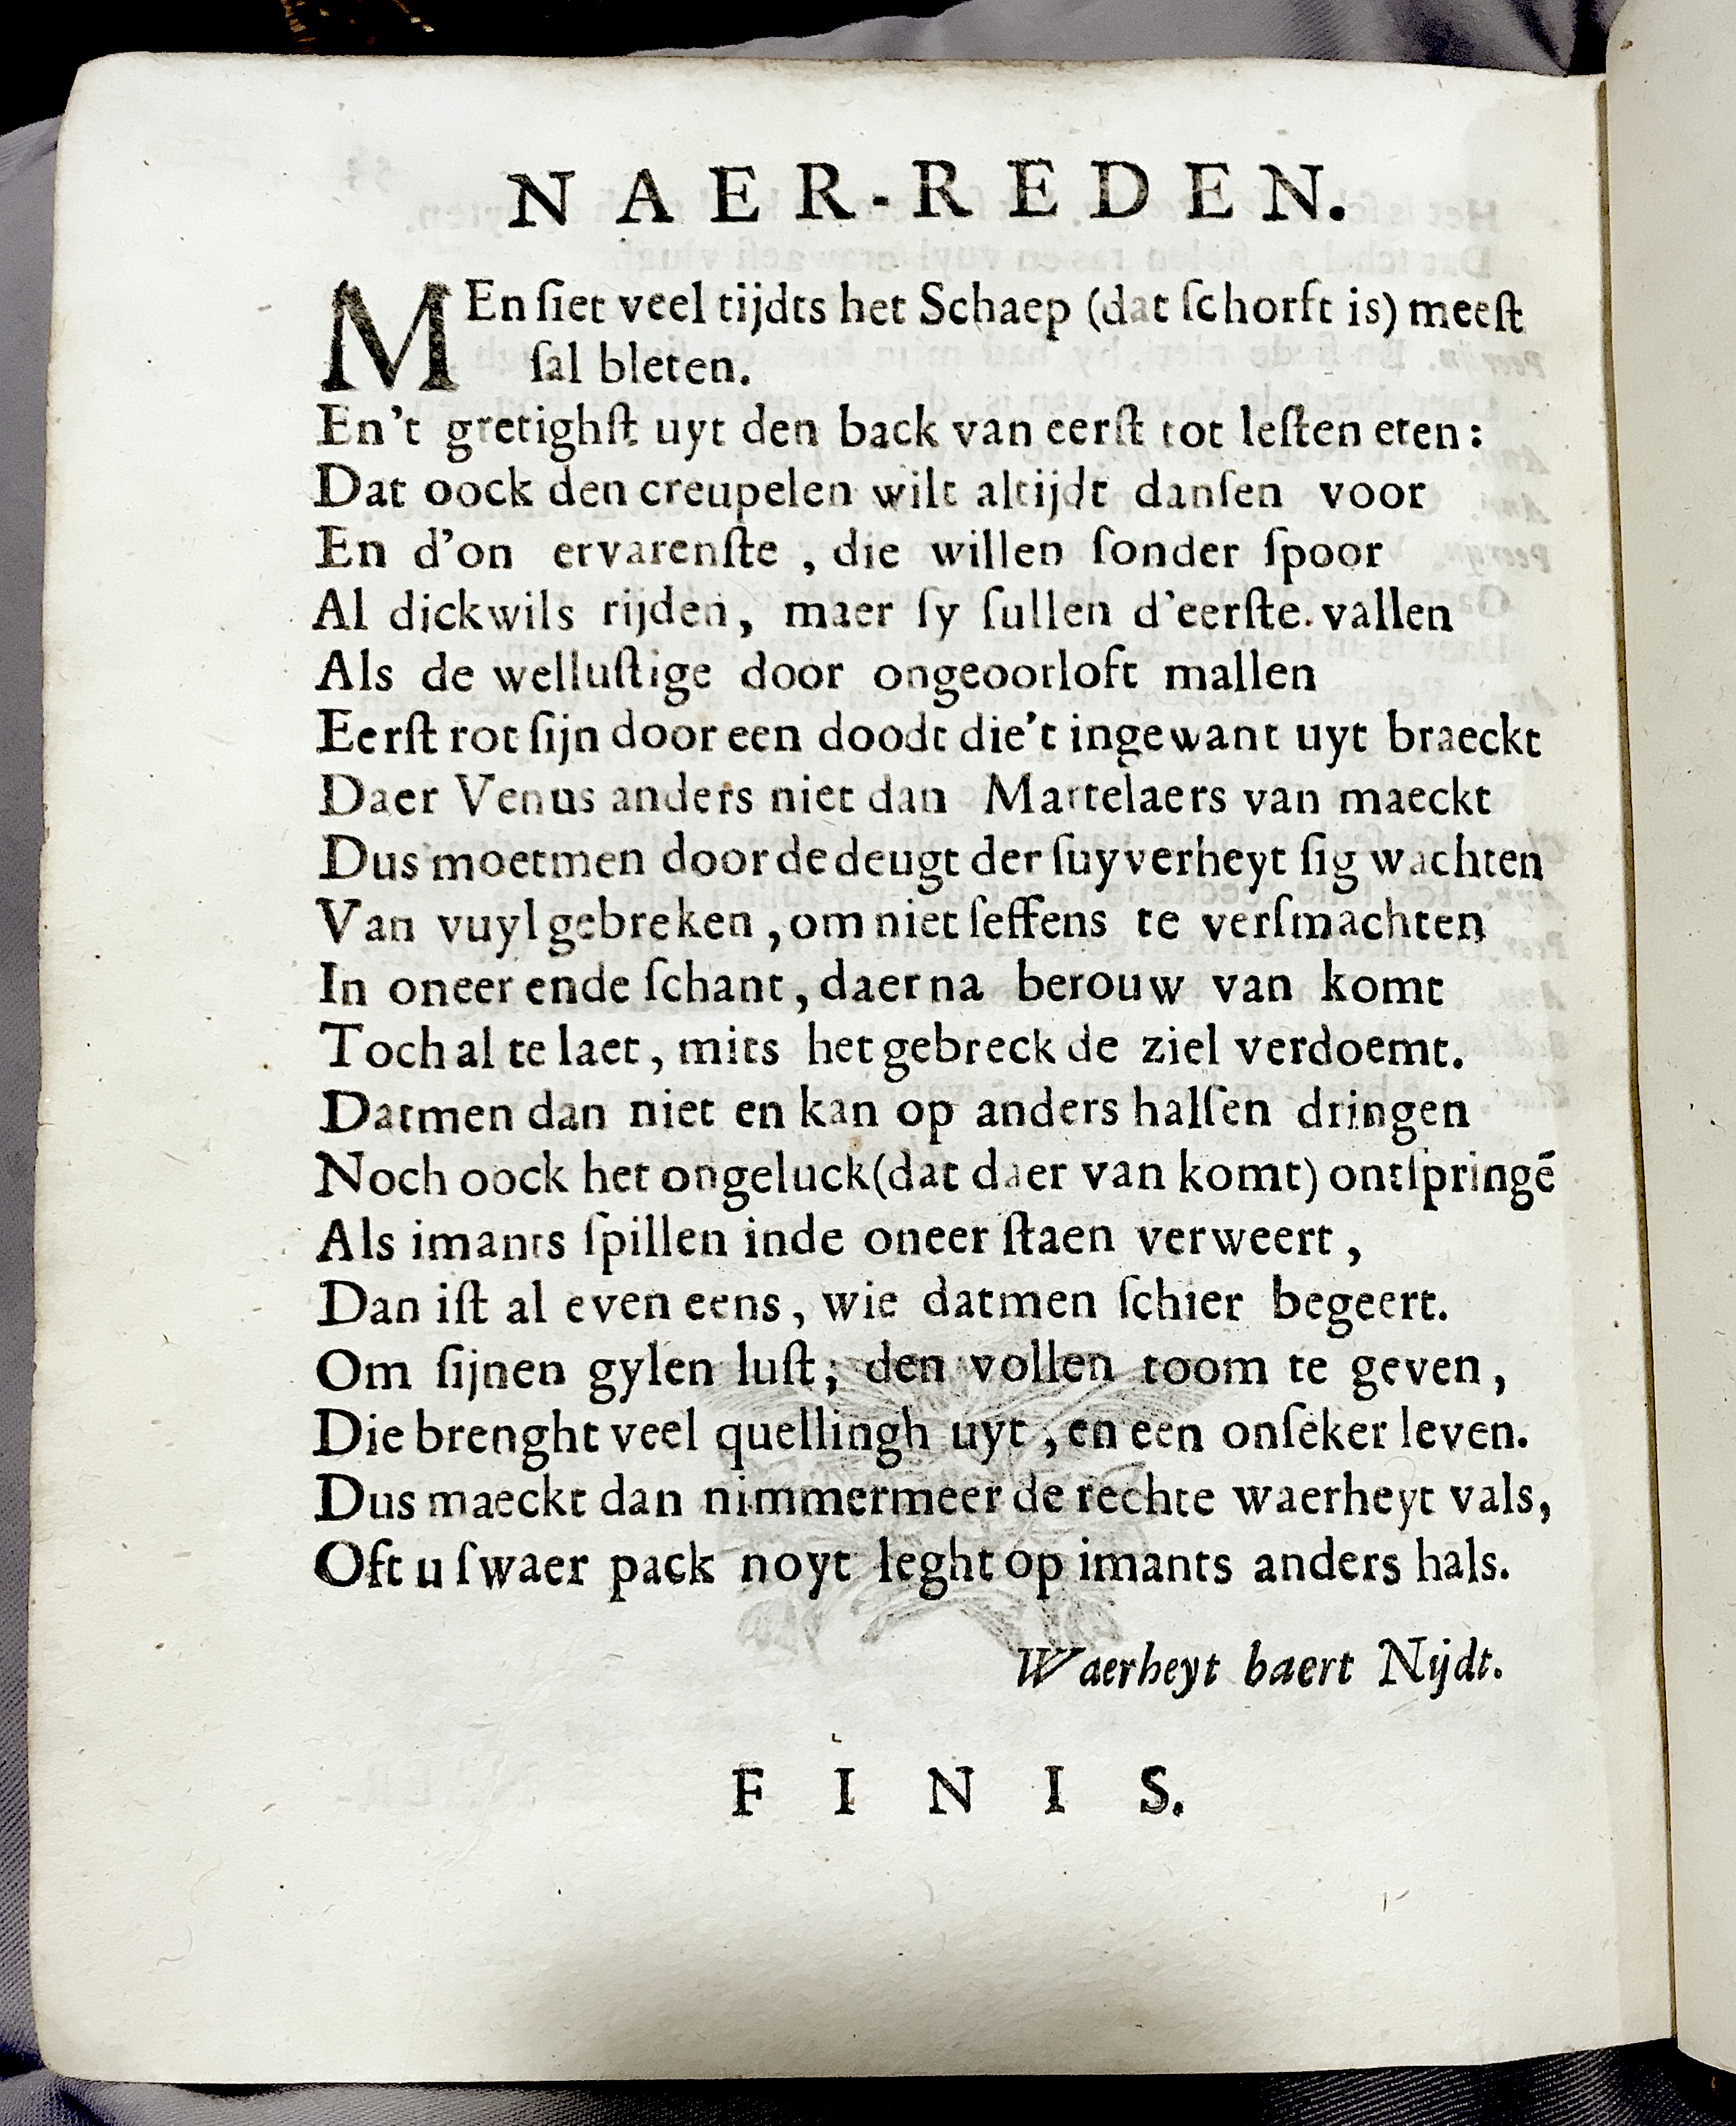 NAER-REDEN.
MEn ſiet veel tijdts het Schaep (dat ſchorft is) meeſt
ſal bleten.
En't gretighſt uyt den back van eerſt tot leſten eten:
Dat oock den creupelen wilt altijdt danſen voor
En d'on ervarenſte, die willen ſonder ſpoor
Al dickwils rijden, maer ſy ſullen d'eerſte. vallen
Als de welluſtige door ongeoorloft mallen
Eerſt rot ſijn door een doodt die't ingewant uyt braeckt
Daer Venus anders niet dan Martelaers van maeckt
Dus moetmen door de deugt der ſuyverheyt ſig wachten
Van vuyl gebreken, om niet ſeffens te verſmachten
In oneer ende ſchant, daer na berouw van komt
Toch al te laet, mits het gebreck de ziel verdoemt.
Datmen dan niet en kan op anders halſen dringen
Noch oock het ongeluck (dat daer van komt) ontſpringē
Als imants ſpillen inde oneer ſtaen verweert,
Dan iſt al even eens, wie datmen ſchier begeert.
Om ſijnen gylen luſt; den vollen toom te geven,
Die brenght veel quellingh uyt, en een onſeker leven.
Dus maeckt dan nimmermeer de rechte waerheyt vals,
Oft u ſwaer pack noyt leght op imants anders hals.
Waerheyt baert Nijdt.
FINIS.